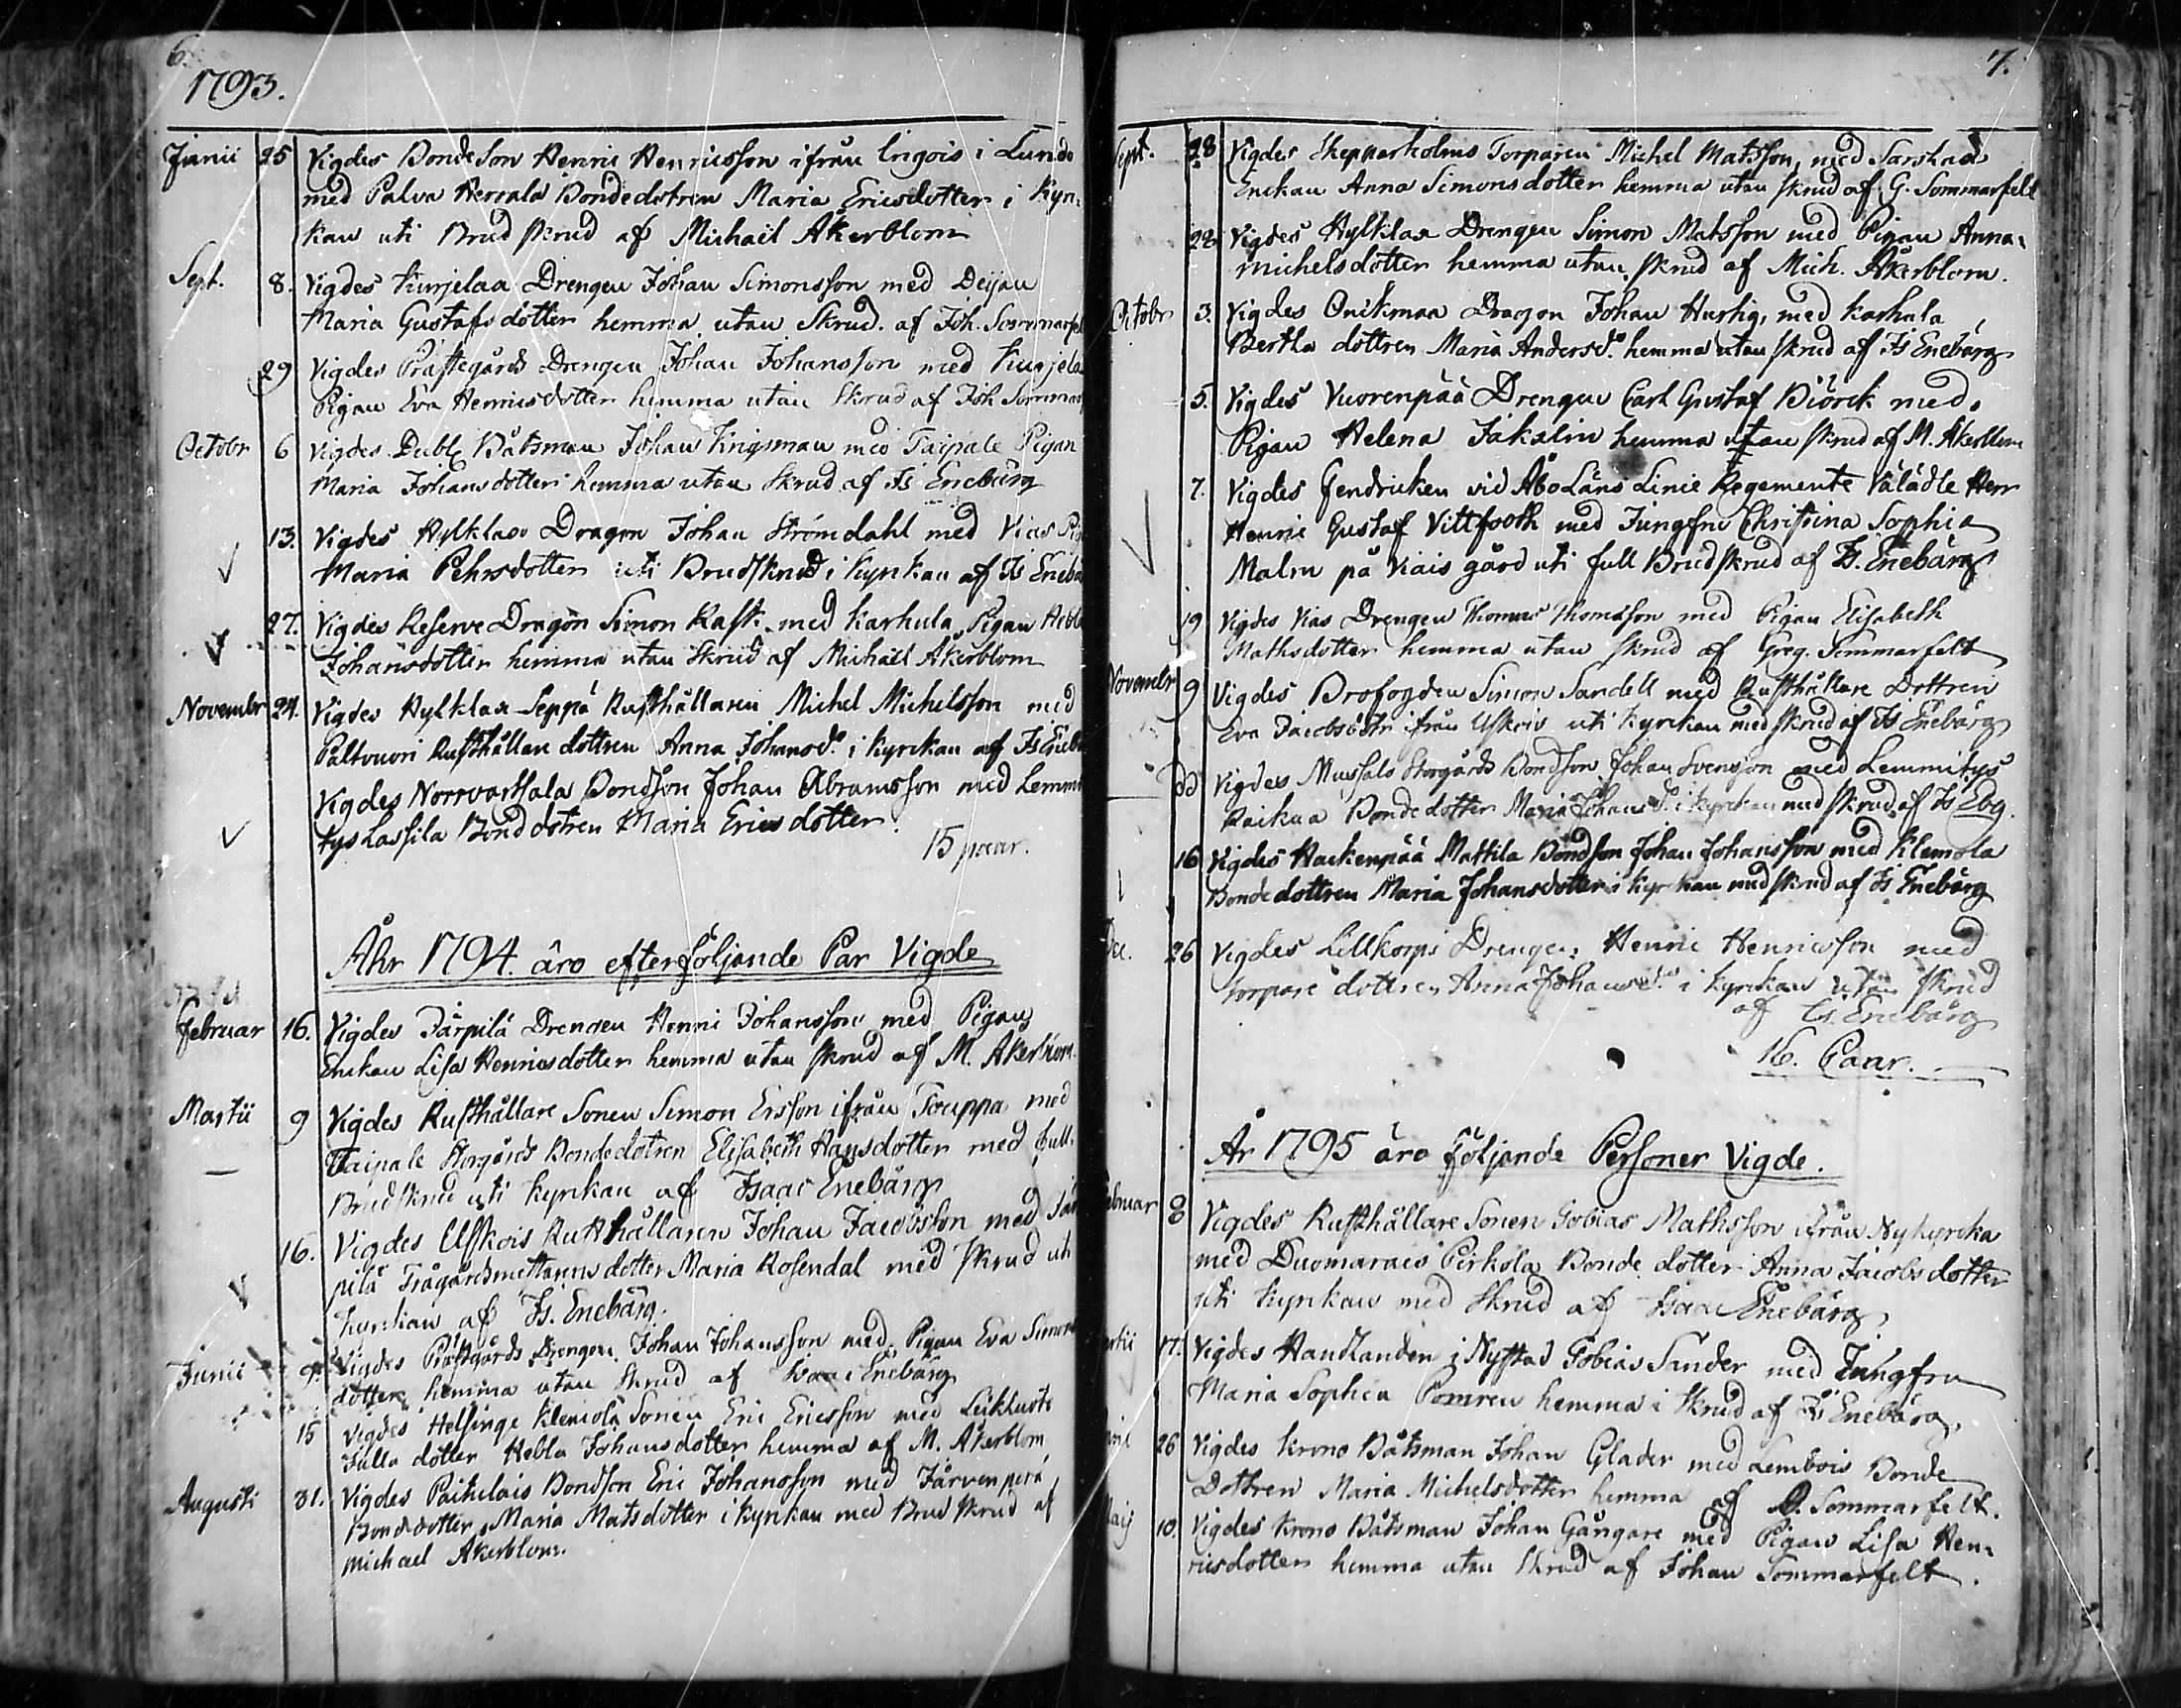 6.
1793.
Junii 25 Vigdes Bonde Son Henric Henricsson ifrån Engois i Lundo
med Palva Herrala Bondedotren Maria Ericsdotter i Kyr-
kan uti Brud skrud af Michaël Åkerblom
Sept. 8. Vigdes Kurjelaa Drengen Johan Simonsson med Deijan
Maria Gustafsdotter hemma utan Skrud. af Joh. Sommarfel
29 Vigdes Prästegårds Drengen Johan Johansson med Kurjela
Pigan Eva Henricsdotter hemma utan Skrud af Joh Sommar
Octobr 6 Vigdes Dubl Båtsman Johan Krigsman med Taipale Pigan
Maria Johansdotter hemma utan Skrud af Is Enebärg
13. Vigdes Hylklax Dragon Johan Strömdahl med Vias Pi
Maria Pehrsdotter uti Brudskrud i kyrkan af Is Enebä
27. Vigdes Reserve Dragon Simon Rask med Karhula Pigan Hebla
Johansdotter hemma utan Skrud af Michaël Åkerblom
Novembr 24. Vigdes Hylklax Seppä Rusthållaren Michel Michelsson med
Paltvuori Rusthållare dottren Anna Johansd:r i kyrkan af Is Eneb
Vigdes Norrvartsala Bondson Johan Abramsson med Lemmi
tys Lassila Bonddotren Maria Ericsdotter.
15 paar.
Åhr 1794. äro efterföljande Par Vigde
Februar 16. Vigdes Järpilä Drengen Henric Johansson med Pigan
Enckan Lisa Henricsdotter hemma utan skrud af M. Åkerblom.
Martii 9 Vigdes Rusthållare Sonen Simon Ersson ifrån Touppa med
Taipale Storgårds Bondedotren Elisabeth Hansdotter med full
Brudskrud uti kyrkan af Isaac Enebärg
16. Vigdes Uskois Rusthållaren Johan Jacobsson med Jär
pilä Trägårdsmestarens dotter Maria Rosendal med skrud uti
kyrkan af Is. Enebärg.
Junii 9. Vigdes Prästgårds Drengen Johan Johansson med Pigan Eva Simons
dotter hemma utan Skrud af Isaac Enebärg
15 Vigdes Helsinge Klemola Sonen Eric Ericsson med Leikluoto
Julla dotter Hebla Johansdotter hemma af M. Åkerblom
Augusti 31. Vigdes Paikelais Bondson Eric Johansson med Järvenperä
Bonddotter Maria Matsdotter i kyrkan med Brud skrud af
Michael Åkerblom.
7.
Sept. 28 Vigdes Skepparholms Torparen Michel Matsson, med Sarsha
Enckan Anna Simonsdotter hemma utan skrud af G. Sommarfelt
28 Vigdes Hylklax Drengen Simon Matsson med Pigan Anna
Michelsdotter hemma utan skrud af Mich. Åkerblom.
Octobr 3. Vigdes Onikmaa Dragon Johan Hurtig, med Karhula
Bertla dottren Maria Andersd:r hemma utan skrud af Is Enebärg
5. Vigdes Vuorenpää Drengen Carl Gustaf Biörck med
Pigan Helena Jakalin hemma utan skrud af M. Åkerblom
7. Vigdes Fendricken vid Åbo Läns Linie Regemente Välädle Herr
Henric Gustaf Vittfooth med Jungfru Christina Sophia
Malm på Viais gård uti full Brudskrud af Is. Enebärg
19 Vigdes Vias Drengen Thomas Thomasson med Pigan Elisabeth
Mathsdotter hemma utan skrud af Greg. Sommarfelt
Novembr 9 Vigdes Brofogden Simon Sandell med Rusthållare Dottren
Eva Jacobsdotr ifrån Uskois uti kyrkan med skrud af Is Enebärg
dd Vigdes Mussalo Storgårds Bondson Johan Svensson med Lemmitys
Raikua Bondedotter Maria Johansd:r i kyrkan med skrud af Is Ebg.
16 Vigdes Haukenpää Mattila Bondson Johan Johansson med Klemola
Bondedottren Maria Johansdotter i kyrkan med skrud af Is Enebärg
Dec. 26 Vigdes Lillkorpi Drengen Henric Henricsson med
torpare dottren Anna Johansd:r i kyrkan utan skrud
af Is. Enebärg
16. Paar.
År 1795 äro följande Personer Vigde.
ebruar 8 Vigdes Rusthållare Sonen Tobias Mathsson ifrån Nykyrka
med Duomarais Pirkola Bonde dotter Anna Jacobsdotter
uti kyrkan med Skrud af Isaac Enebärg
artii 17. Vigdes Handlanden i Nystad Tobias Sunder med Jungfru
Maria Sophia Pomren hemma i Skrud af Is Enebärg.
26 Vigdes Krono Båtsman Johan Glader med Lembois Bonde
Dottren Maria Michelsdotter hemma af D. Sommarfelt.
Maij 10. Vigdes Krono Båtsman Johan Gångare med Pigan Lisa Hen-
ricsdotter hemma utan Skrud af Johan Sommarfelt.